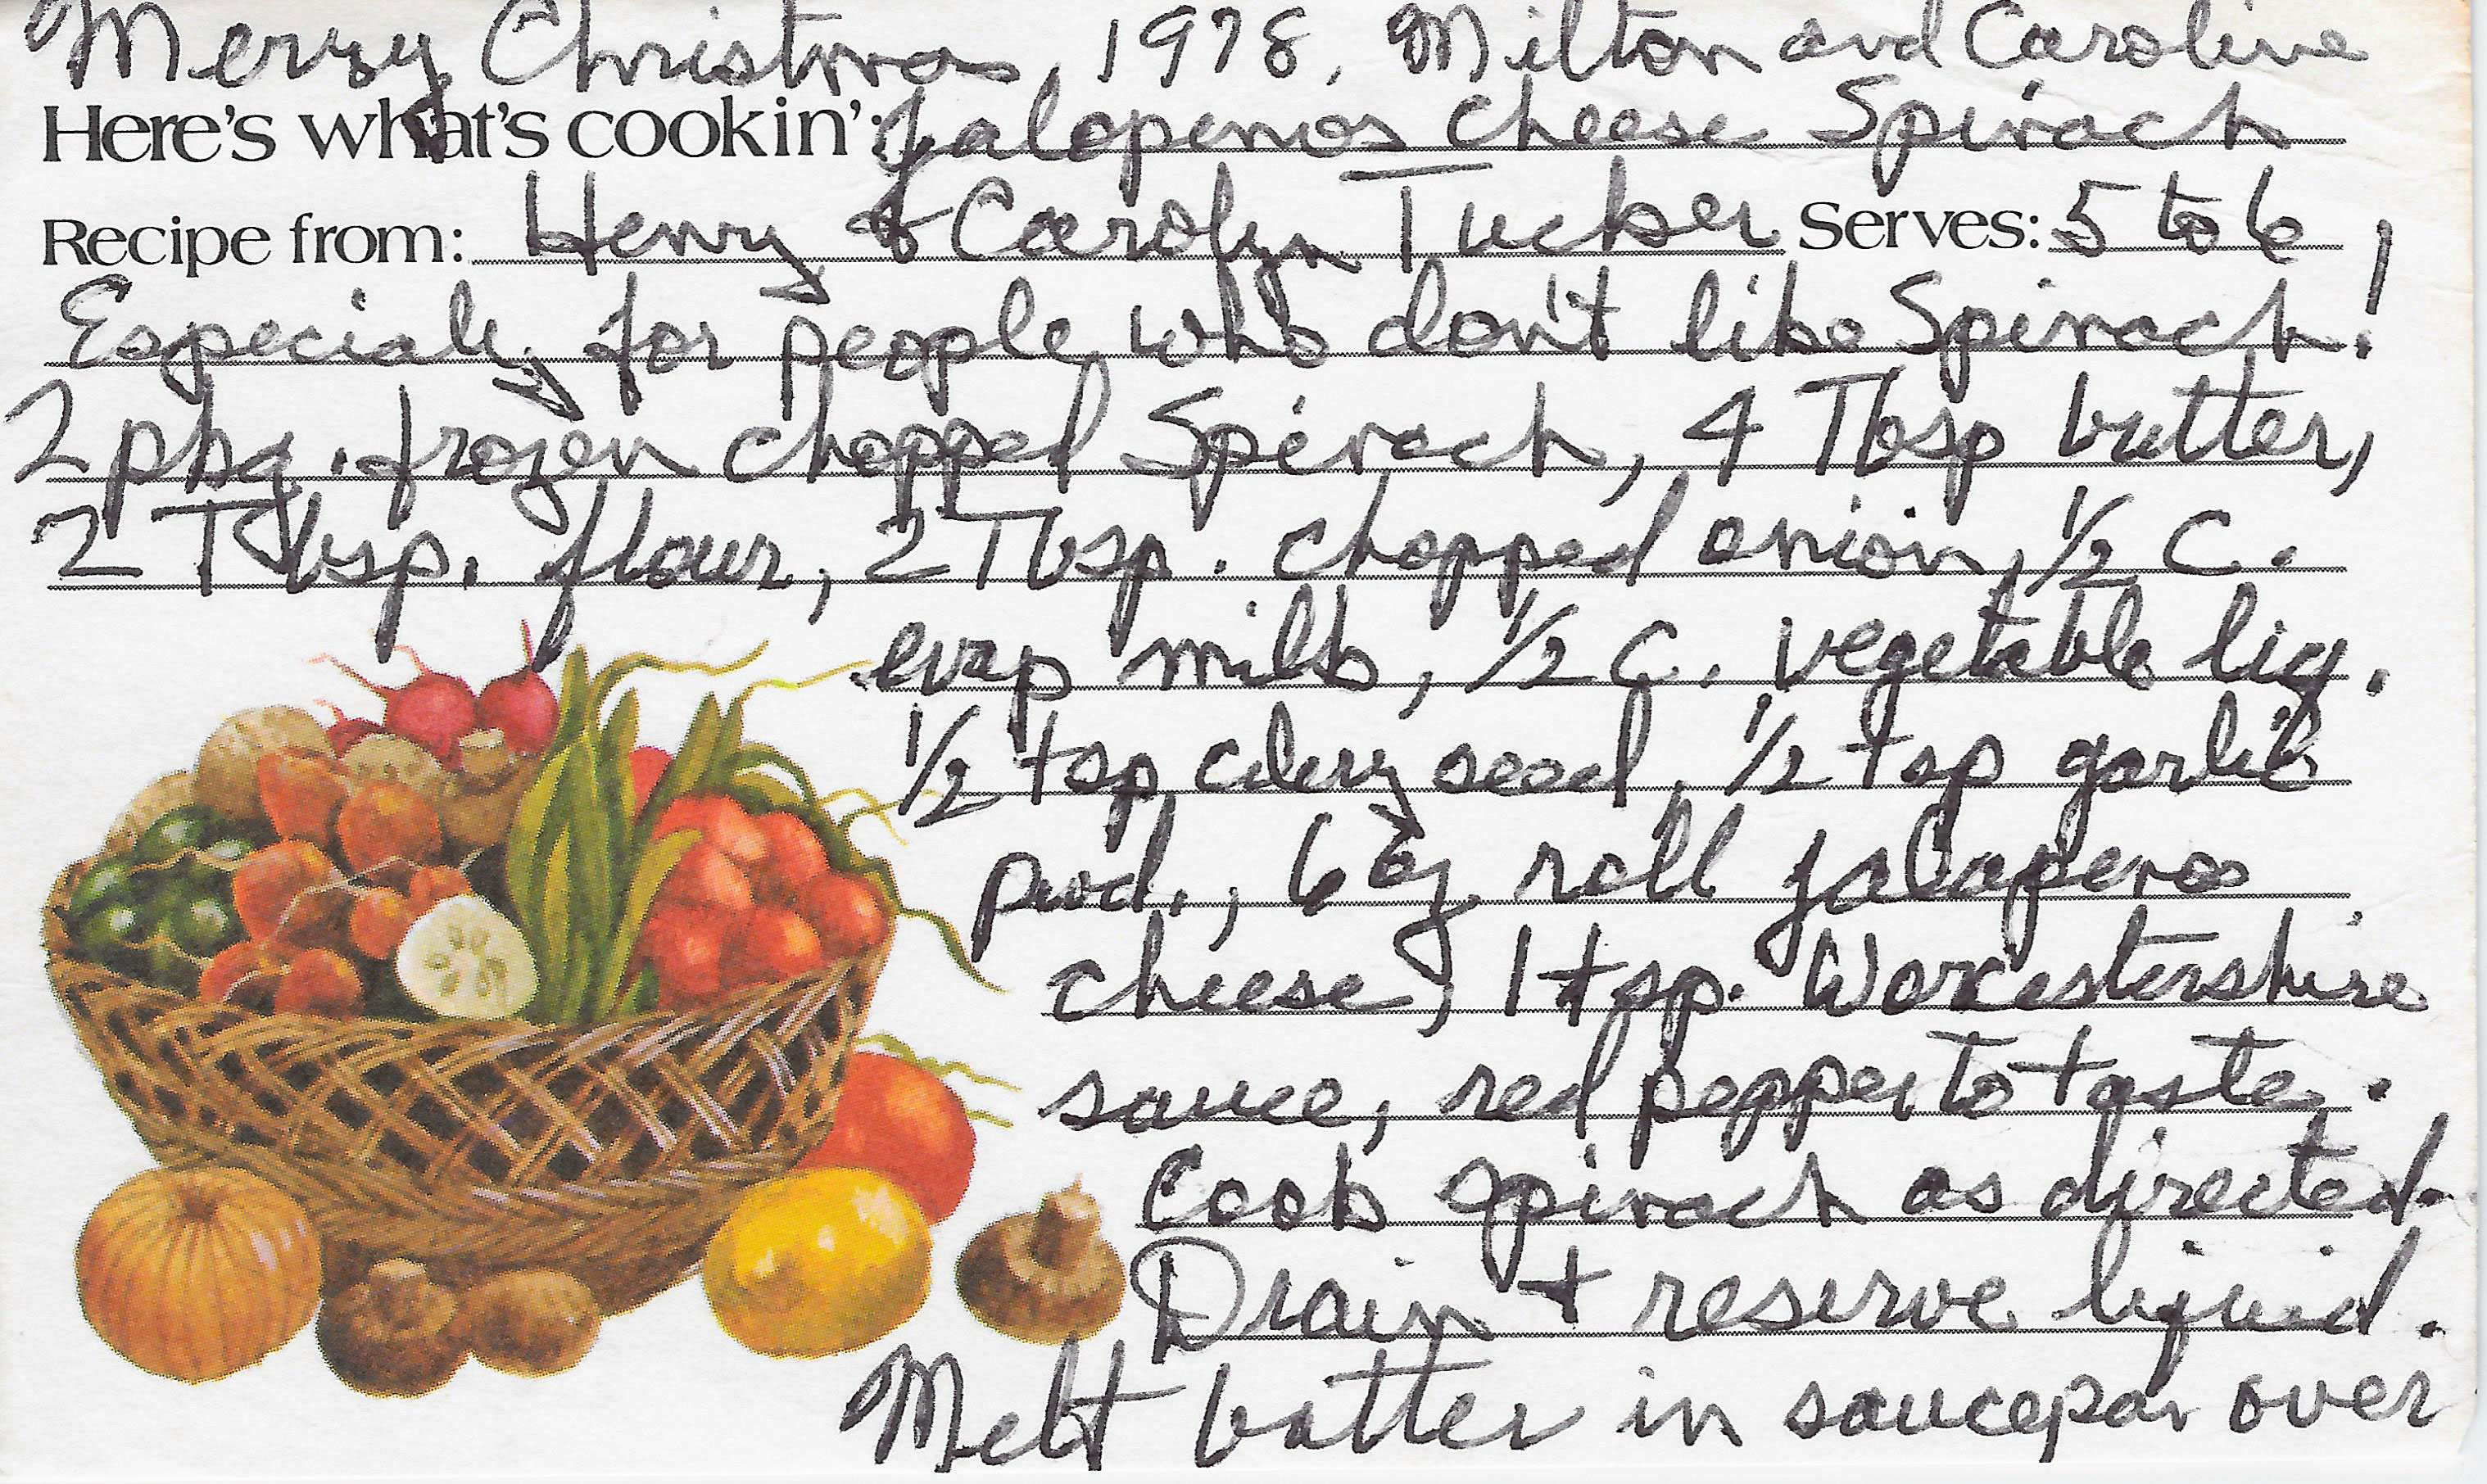 Merry Christmas, 1978, Milton and Caroline
Here's what's cookin': Jalapenos Cheese Spinach
Recipe from: Henry & Carolyn Tucker Serves: 5 to 6
Especialy for people who don't like Spinach!
2 pkg. frozen chopped Spinach, 4 Tbsp butter,
2 Tbsp. flour, 2 Tbsp. chopped onion, ½ C.
evap milk, ½ C. vegetable liq.
½ tsp celery seed, ½ tsp garlic
pwd., 6 oz. roll jalapenos
cheese, 1 tsp. Worcestershire
sauce, red pepper to taste.
Cook spinach as directed.
Drain + reserve liquid.
Melt butter in saucepan over